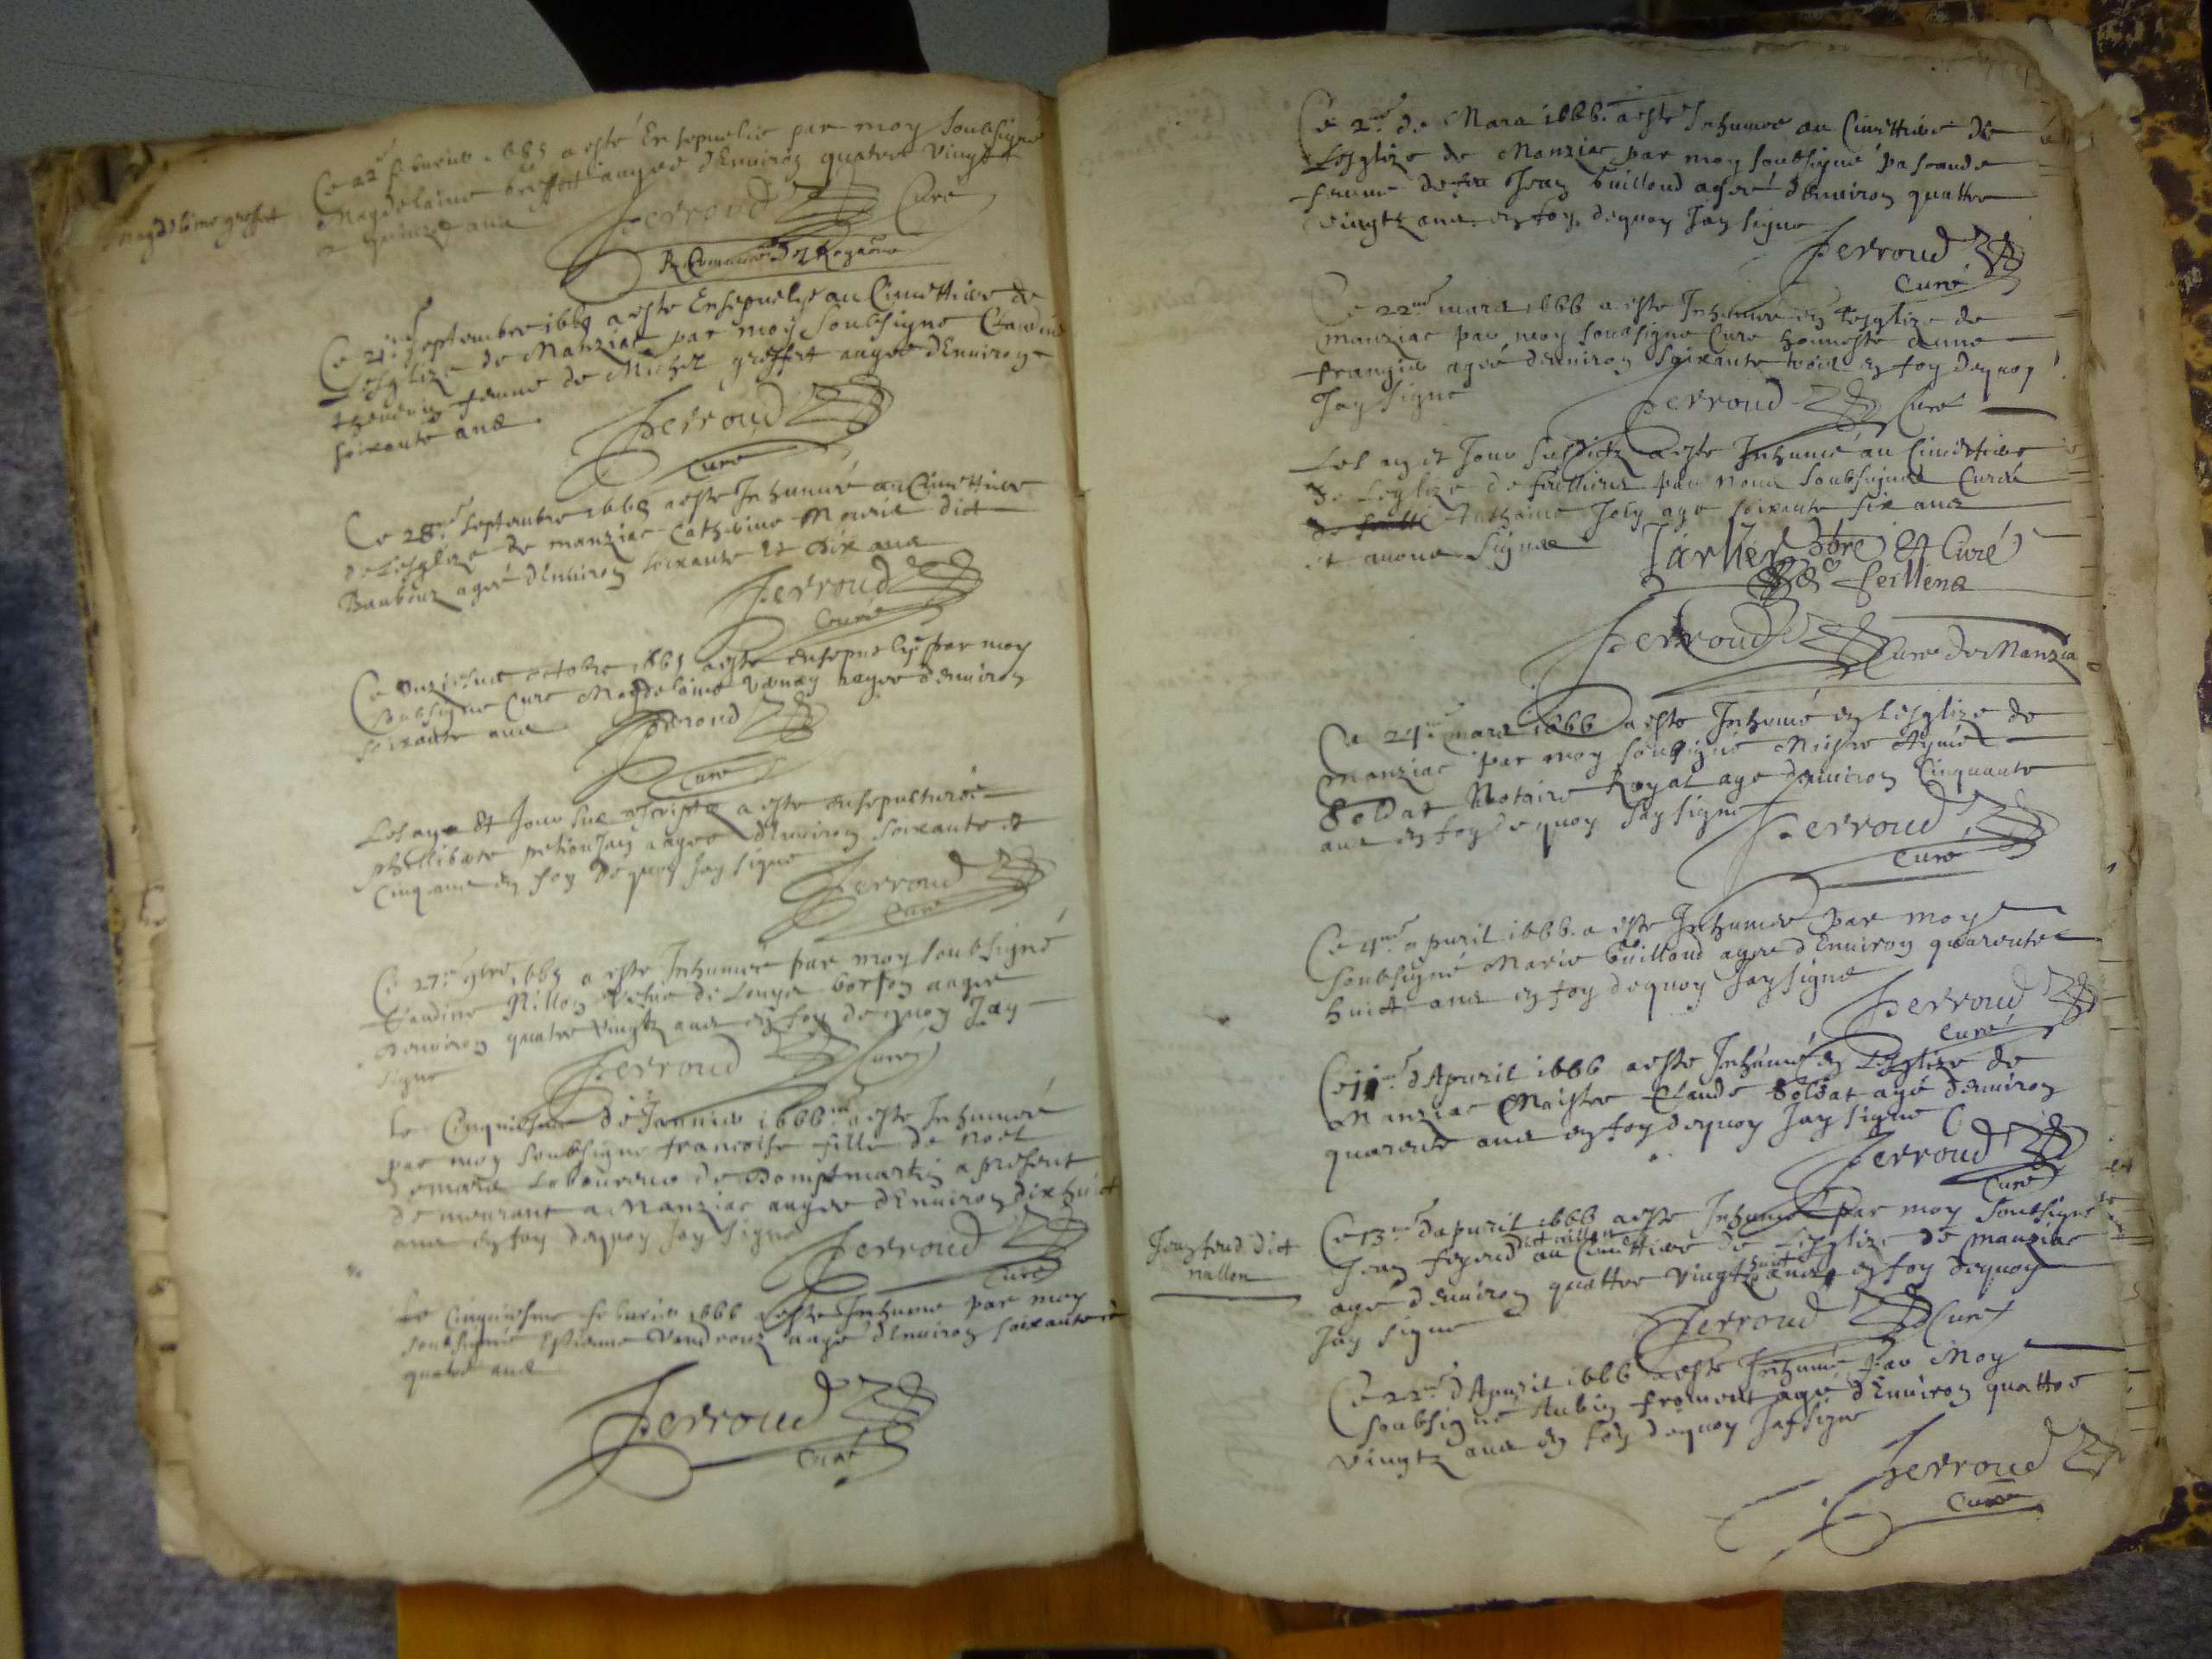 Magdelaine greffet
Ce 22 feburier 1665 a esté Ensepuelie par moy soubsigné
Magdelaine greffet aagee d'Enuiron quatre vingt
quinze ans
Perroud Curé
Ce 21me septembre 1665 a este Ensepuelye au Cimettiere de
Lesglize de Manziat par moy soubsigne Claudine
femme de Michel greffet aagee d'Enuiron
soixante ans.
Perroud
Curé
Ce 28me septembre 1665 a este Inhumée au Cimettiere
de Lesglize de manziac Catherine Mouris dict
agée d'Enuiron soixante et dix ans
Perroud
Curé
Ce onziesme octobre 1665 a este ensepuelye par moy
soubsigne Curé Magdelaine aagee d'enuiron
soixante ans Perroud
Curé
Les an et Jour sus escriptz a este ensepulturée
phillibarte aagee d'Enuiron soixante et
Cinq ans en foy dequoy Jay signé
Perroud
Curé
Ce 27me 9bre 1665 a este Inhumée par moy soubsigné
Claudine Rillon vefue de Louys aagee
d'enuiron quatre vingtz ans en foy dequoy Jay
signé Perroud Curé
Le Cinquiesme de Januier 1666 a este Inhumée
par moy soubsigne francoise fille de Noel
demara Laboureur de Dompmartin a present
demeurant a Manziac aagée d'Enuiron dix huict
ans en foy dequoy Jay signé
Perroud
Curé
Le Cinquiesme feburier 1666 a este Inhumé par moy
soubsigné Estienne aagé d'Enuiron soixante et
quatre ans
Perroud
Curé
Ce 2me de Mars 1666. a este Inhumee au Cimettiere de
Lesglize de Manziac par moy soubsigné pascande
femme de feu Jean Guilloud agée d'Enuiron quattre
vingtz ans. en foy dequoy Jay signe
Perroud
Curé
Ce 22me mars 1666 a este Inhumée en Lesglize de
manziac par moy soubsigne Curé honneste anne
agée d'enuiron soixante trois en foy dequoy
Jay signe Perroud Curé
Les an et Jour susdictz a este Inhumé au Cimetiere
de Leglize de feilliens par nous soubsignes Curés
Anthoine Joly age soixante six ans
et auons signés Jarlier pbre et Curé
de feillens
Perroud Curé de Manzia
Ce 24me mars 1666 a este Inhumé en Lesglize de
Manziac par moy soubsigné Maistre Aymé
Soldat Notaire Royal age d'enuiron Cinquante
ans en foy dequoy Jay signe
Perroud
Curé
Ce 4me apuril 1666. a este Inhumée par moy
soubsigné Marie Guilloud agee d'Enuiron quarente
huict ans en foy dequoy Jay signé
Perroud
Curé
Ce 11me d'Apuril 1666 a este Inhumé en Lesglize de
Manziac Maistre Claude Soldat agé d'enuiron
quarente ans en foy dequoy Jay signe
Perroud
Curé
dict
Ce 13me d'apuril 1666 a este Inhumé par moy soubsigne
Jean au Cimettiere de Lesglize de manziac
agé d'enuiron quattre vingtz ans en foy dequoy
Jay signe Perroud Curé
Ce 22me d'Apuril 1666 a este Inhumé par Moy
soubsigné Aubin froment agé d'Enuiron quattre
vingtz ans en foy dequoy Jay signe
Perroud
Curé